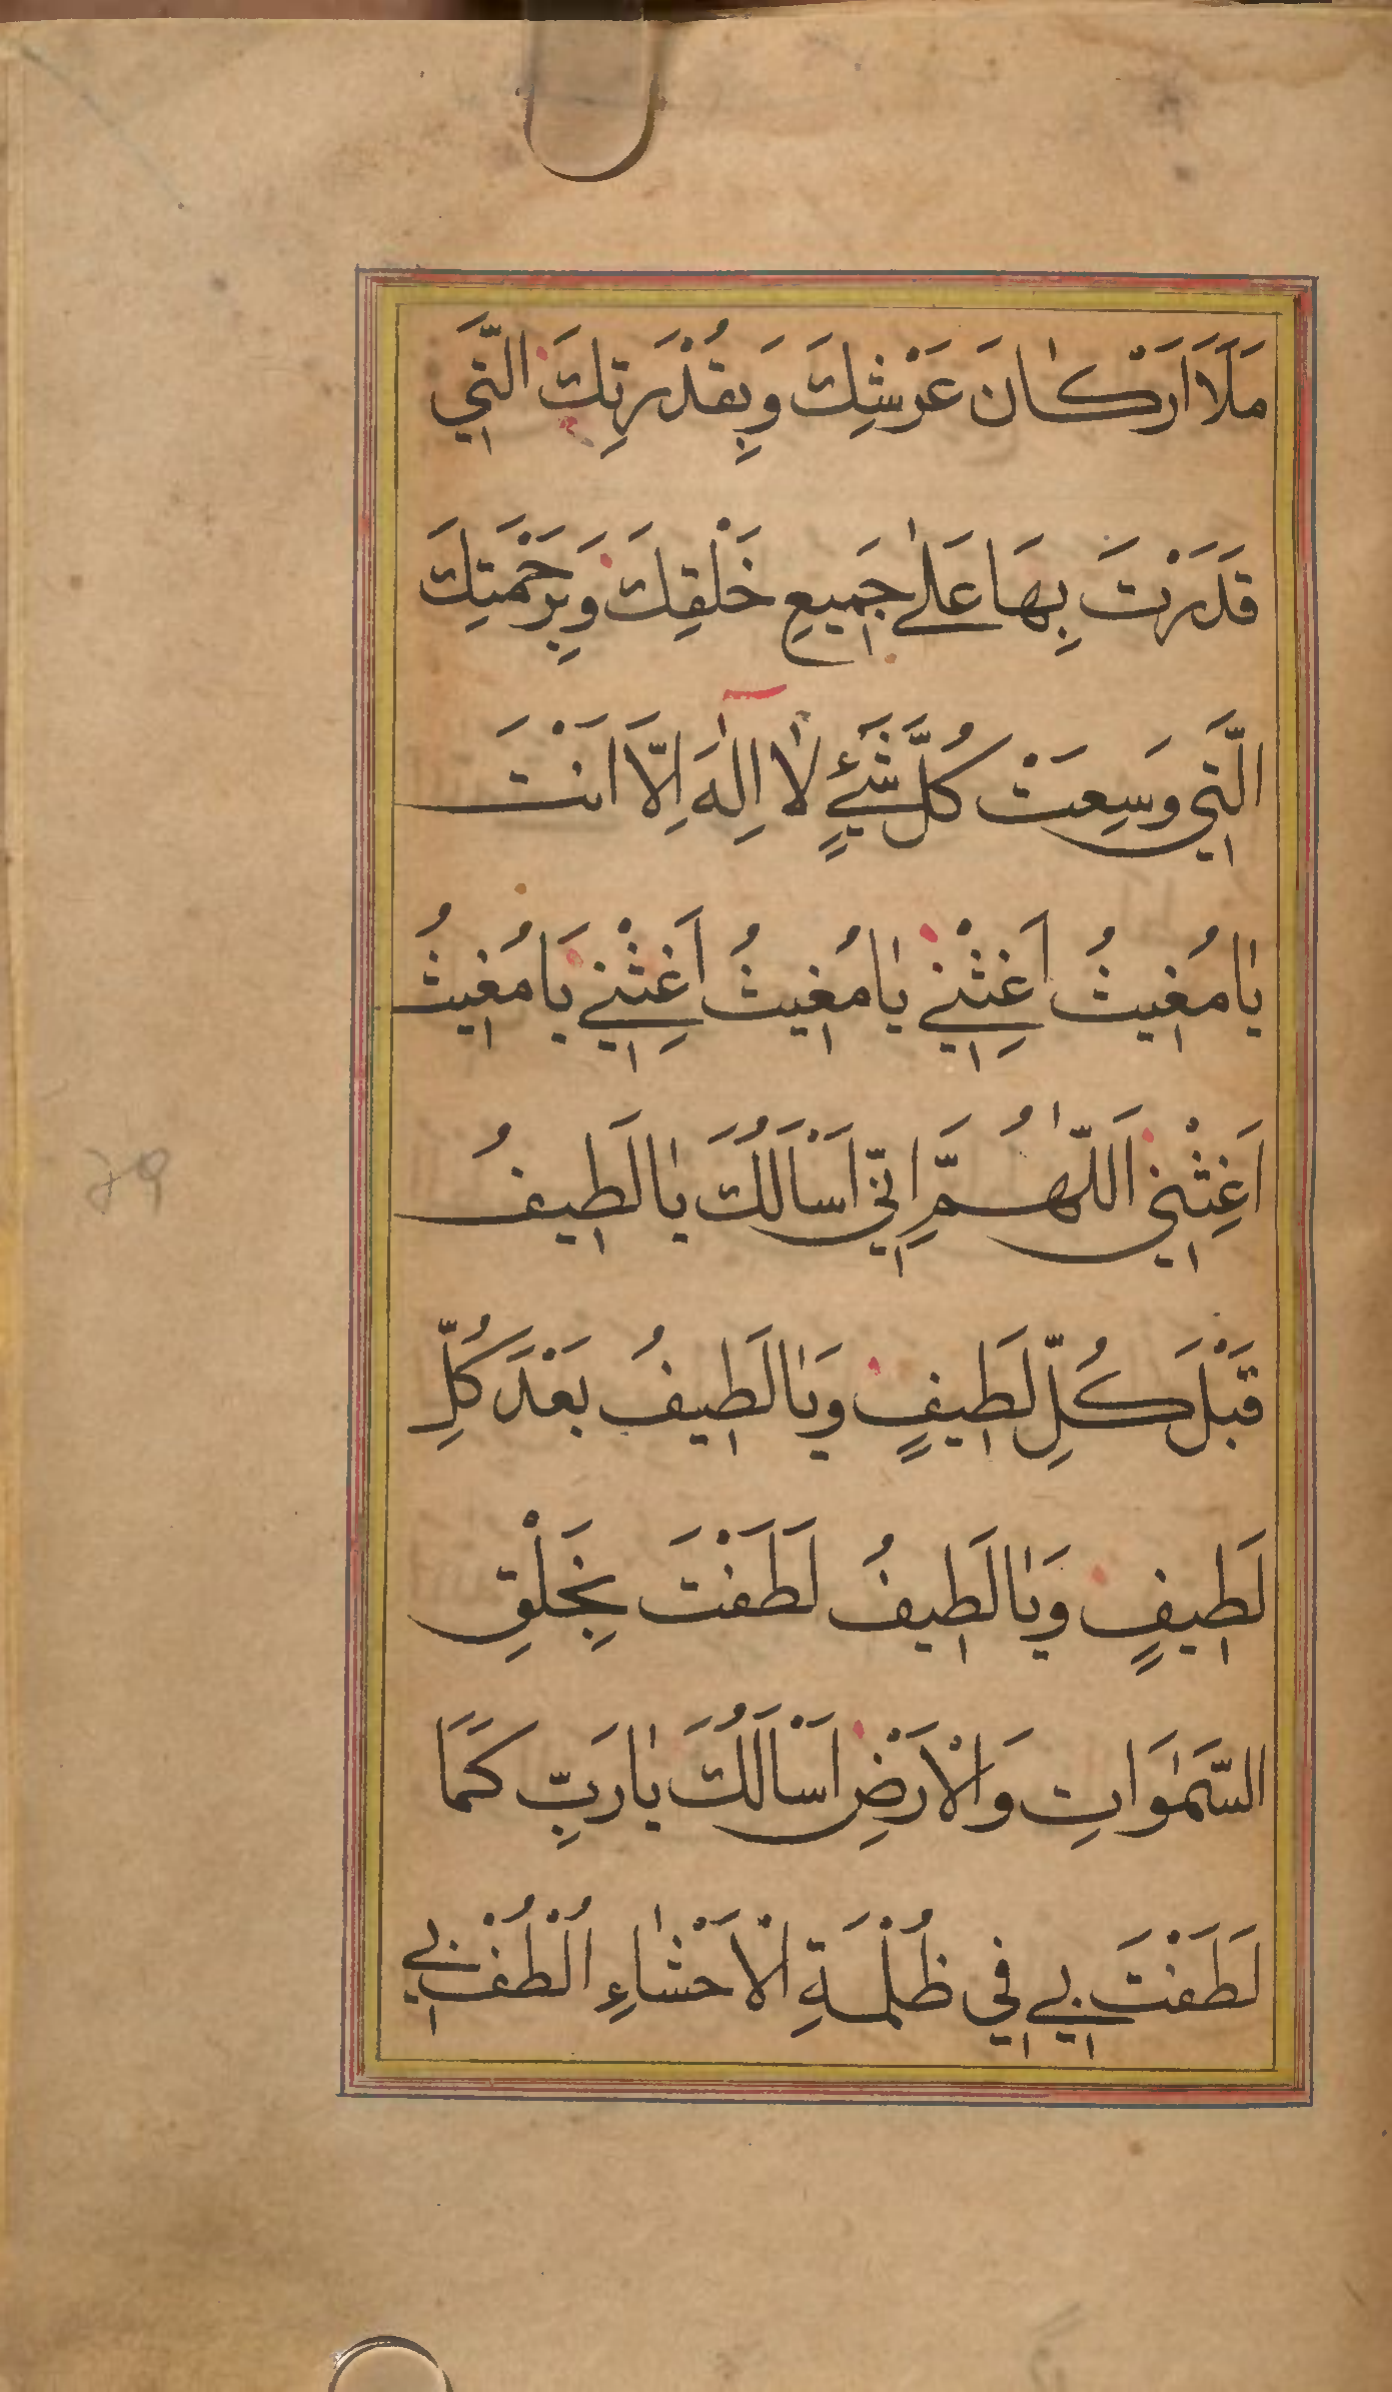 مَلَاَ اَرْكٰانَ عَرْشِكَ وَبِقُدْرَتِكَ الَّتِي
قَدَرْتَ بِهَا عَلٰى جَمِيعِ خَلْقِكَ وَبِرَحْمَتِكَ
الَّتِي وَسِعَتْ كُلَّ شَيْءٍ لٰا اِلٰهَ اِلَّا اَنْتَ
يٰا مُغِيثُ اَغِثْنِي يٰا مُغِيثُ اَغِثْنِي يَا مُغِيثُ
اَغِثْنِي اَللّٰهُمَّ اِنِّي اَسْاَلُكَ يٰا لَطِيفُ
قَبْلَ كُلِّ لَطِيفٍ وَيٰا لَطِيفُ بَعْدَ كُلِّ
لَطِيفٍ وَيٰا لَطِيفُ لَطَفْتَ بِخَلْقِ
السَّمٰوَاتِ وَالْاَرْضِ اَسْاَلُكَ يٰا رَبِّ كَمَا
لَطَفْتَ بِي فِي ظُلْمَةِ الْاَحْشٰاءِ اُلْطُفْ بِي
79